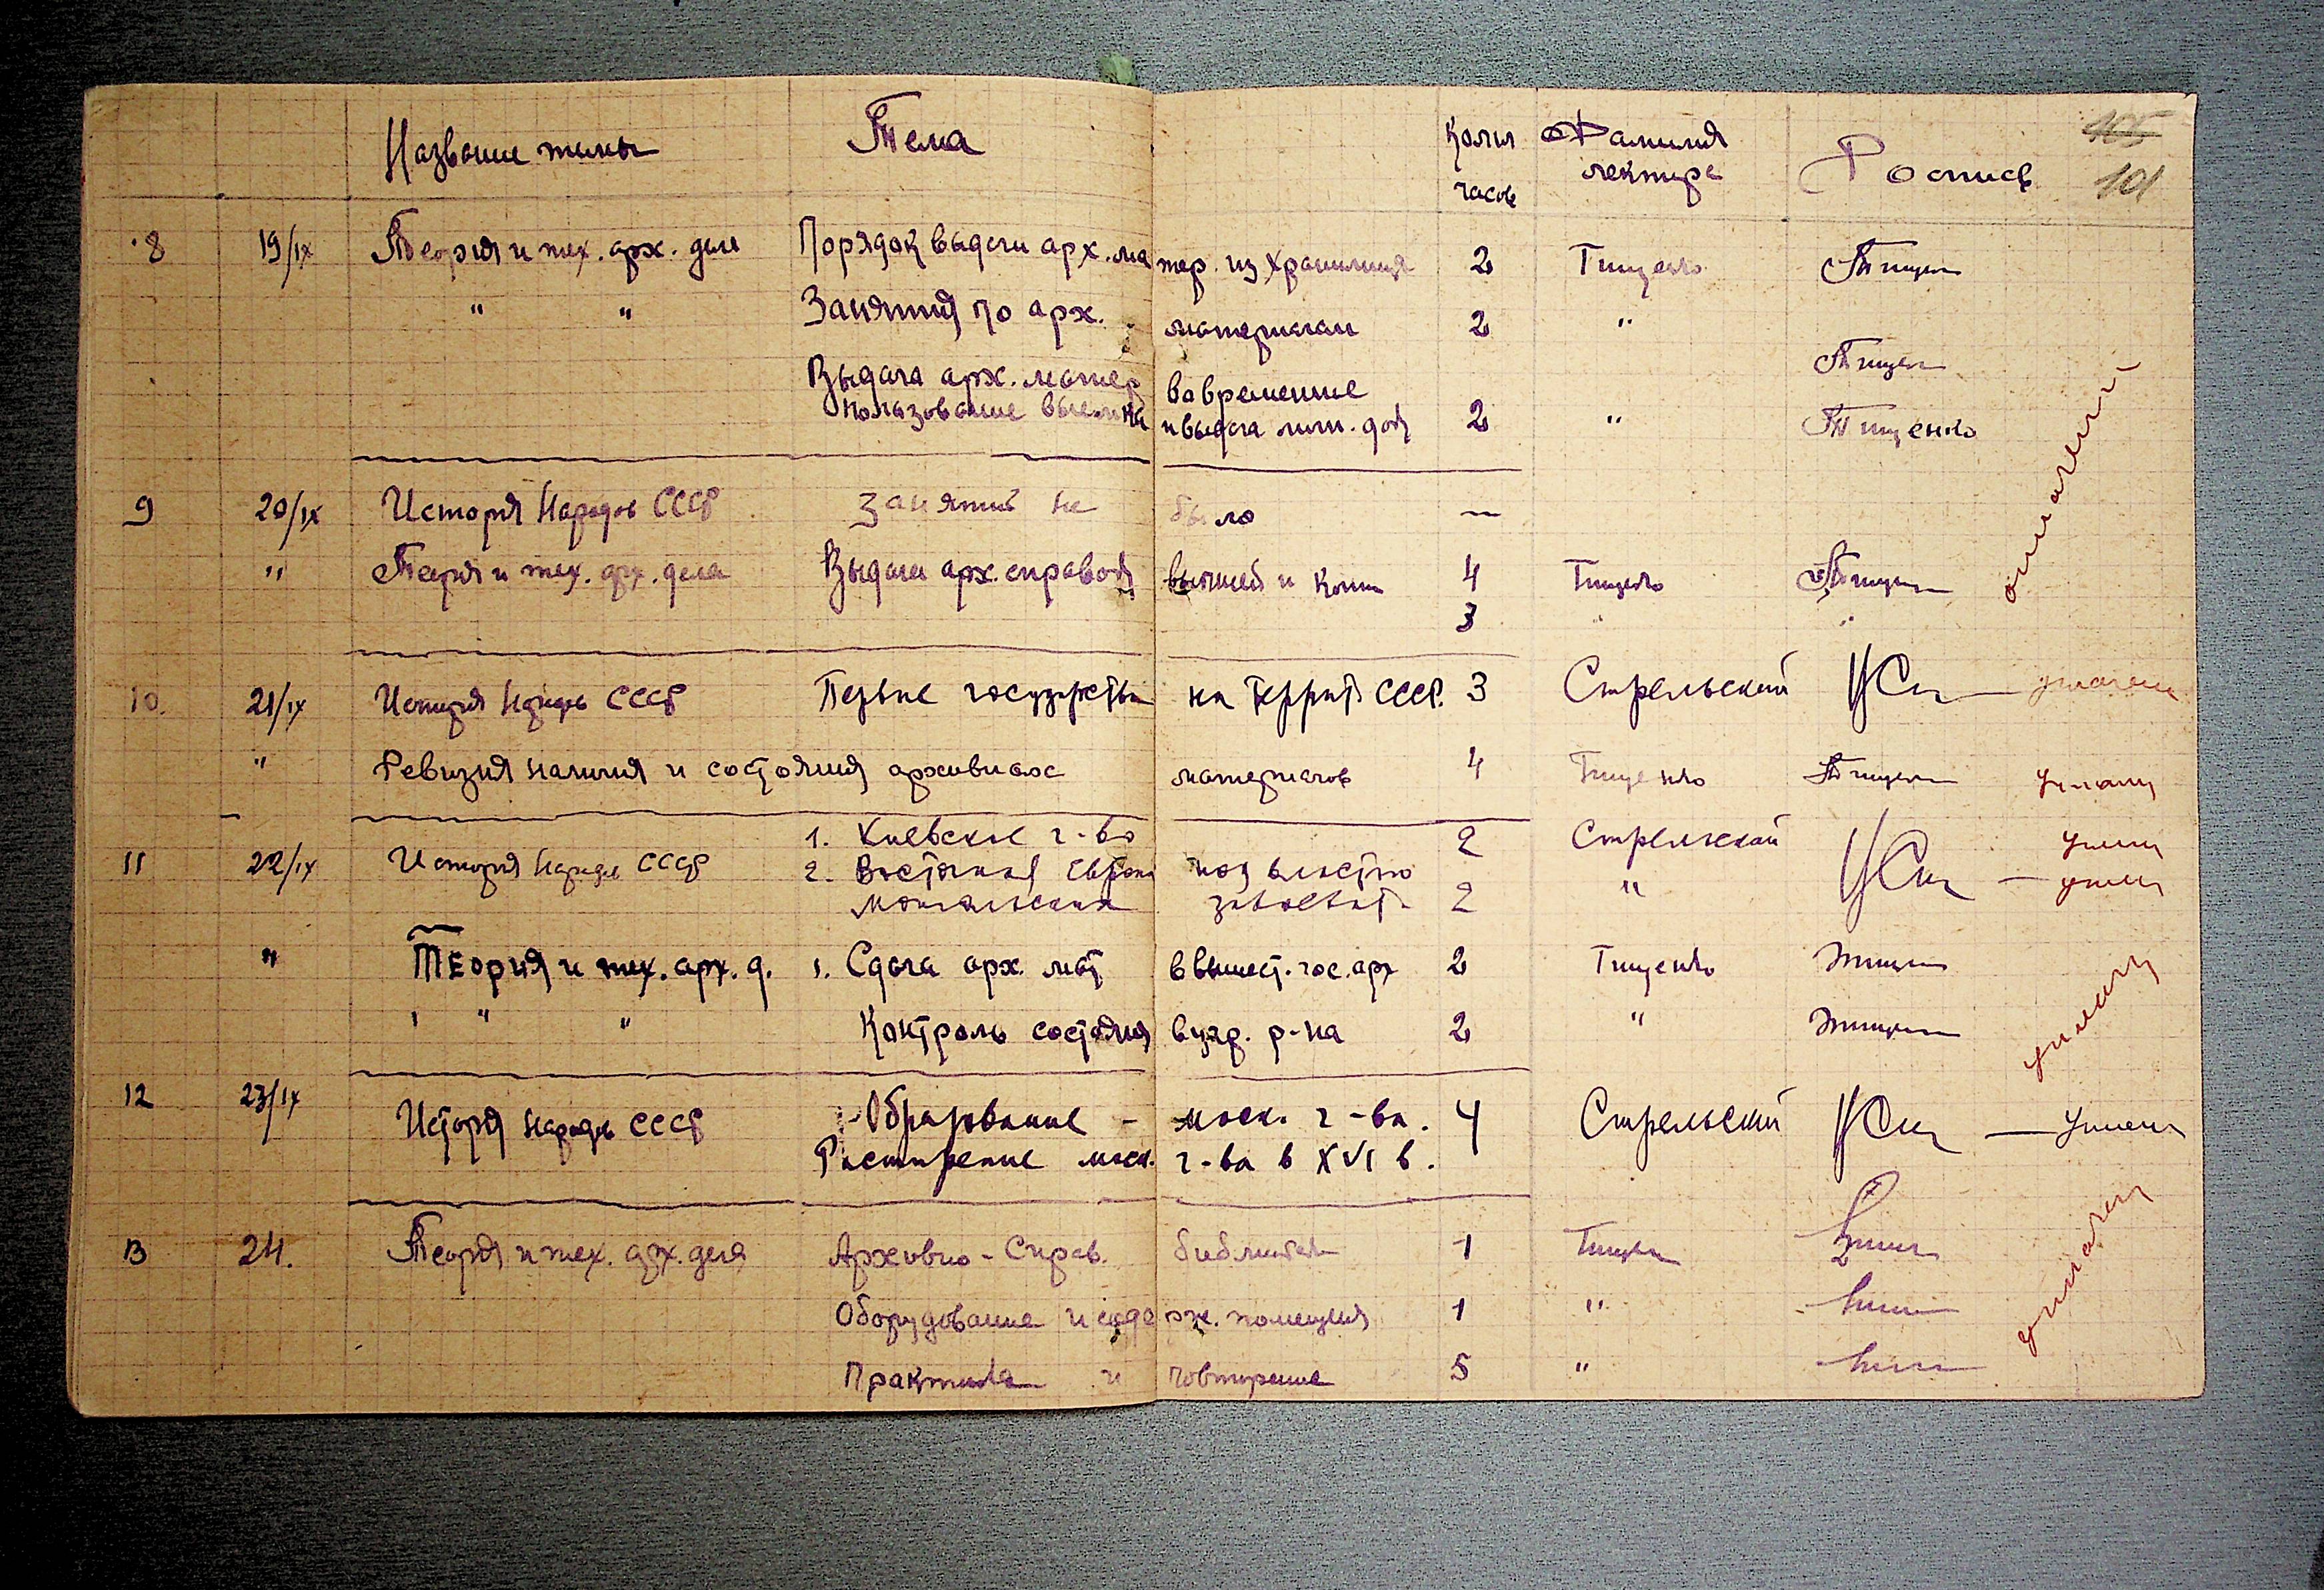 Название темы Тема Колич часов Фамилия лектора Роспись 105 101
8 19/IX Теория и тех. арх. дела Порядок выдачи арх. матер. из хранилища 2 Тищенко Тищен
" " Занятия по арх. материалам 2 " Тищен
Выдача арх. матер во временное
пользование и выдача 2 " Тищенко
9 20/IX История Народов СССР Занятий не было —
" Теория и тех. арх. дела Выдача арх. справок выписей и копий 4 Тищенко Тищен
3 " "
10. 21/IX История Народов СССР Первые государства на террит. СССР. 3 Стрельский
" Ревизия наличия и состояния архивных материалов 4 Тищенко Тищен
11 22/IX История Народов СССР 1. Киевское г-во 2 Стрельский
2. Восточная Европа под властью
монгольских завоеват. 2 "
" Теория и тех. арх. д. 1. Сдача арх. мат в вышест. гос. арх 2 Тищенко
" " Контроль состояния 2 "
12 23/IX История Народов СССР Образование - моск. г-ва. 4 Стрельский
Расширение моск. г-ва в XVI в.
13 24. Теория и тех. арх. дела Архивно-Справ. библиотека 1 Тищен
Оборудование и содерж. помещения 1 "
Практика и повторение 5 "